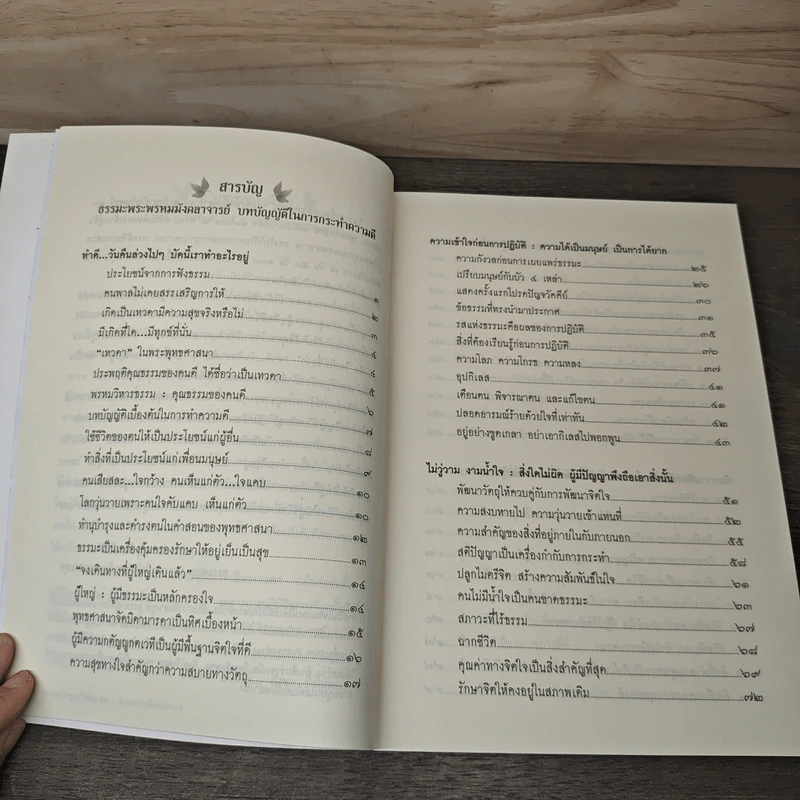 สารบัญ
ธรรมะพระพรหมมังคลาจารย์ บทบัญญัติในการกระทำความดี
ทำดี...วันคืนล่วงไปๆ บัดนี้เราทำอะไรอยู่
ประโยชน์จากการฟังธรรม ๑
คนพาลไม่เคยสรรเสริญการให้ ๒
เกิดเป็นเทวดามีความสุขจริงหรือไม่ ๓
มีเกิดที่ใด...มีทุกข์ที่นั่น ๔
"เทวดา" ในพระพุทธศาสนา ๔
ประพฤติคุณธรรมของคนดี ได้ชื่อว่าเป็นเทวดา ๕
พรหมวิหารธรรม : คุณธรรมของคนดี ๖
บทบัญญัติเบื้องต้นในการทำความดี ๗
ใช้ชีวิตของตนให้เป็นประโยชน์แก่ผู้อื่น ๘
ทำสิ่งที่เป็นประโยชน์แก่เพื่อนมนุษย์ ๙
คนเสียสละ...ใจกว้าง คนเห็นแก่ตัว...ใจแคบ ๑๐
โลกวุ่นวายเพราะคนใจคับแคบ เห็นแก่ตัว ๑๐
ทำนุบำรุงและดำรงตนในคำสอนของพุทธศาสนา ๑๒
ธรรมะเป็นเครื่องคุ้มครองรักษาให้อยู่เย็นเป็นสุข ๑๓
"จงเดินทางที่ผู้ใหญ่เดินแล้ว" ๑๔
ผู้ใหญ่ : ผู้มีธรรมะเป็นหลักครองใจ ๑๔
พุทธศาสนาจัดบิดามารดาเป็นทิศเบื้องหน้า ๑๕
ผู้มีความกตัญญูกตเวทีเป็นผู้มีพื้นฐานจิตใจที่ดี ๑๖
ความสุขทางใจสำคัญกว่าความสบายทางวัตถุ ๑๗
ความเข้าใจก่อนการปฏิบัติ : ความได้เป็นมนุษย์ เป็นการได้ยาก
ความกังวลก่อนการเผยแพร่ธรรมะ ๒๕
เปรียบมนุษย์กับบัว ๔ เหล่า ๒๖
แสดงครั้งแรกโปรดปัญจวัคคีย์ ๓๐
ข้อธรรมที่ทรงนำมาประกาศ ๓๑
รสแห่งธรรมะคือผลของการปฏิบัติ ๓๕
สิ่งที่ต้องเรียนรู้ก่อนการปฏิบัติ ๓๖
ความโลภ ความโกรธ ความหลง ๓๗
อุปกิเลส ๔๑
เตือนตน พิจารณาตน และแก้ไขตน ๔๑
ปลอดอารมณ์ร้ายด้วยใจที่เท่าทัน ๔๒
อยู่อย่างขูดเกลา อย่าเอากิเลสไปพอกพูน ๔๓
ไม่วู่วาม งามน้ำใจ : สิ่งใดไม่ผิด ผู้มีปัญญาพึงถือเอาสิ่งนั้น
พัฒนาวัตถุให้ควบคู่กับการพัฒนาจิตใจ ๕๑
ความสงบหายไป ความวุ่นวายเข้าแทนที่ ๕๒
ความสำคัญของสิ่งที่อยู่ภายในกับภายนอก ๕๕
สติปัญญาเป็นเครื่องกำกับการกระทำ ๕๘
ปลูกไมตรีจิต สร้างความสัมพันธ์ในใจ ๖๑
คนไม่มีน้ำใจเป็นคนขาดธรรมะ ๖๓
สภาวะที่ไร้ธรรม ๖๗
ฉากชีวิต ๖๘
คุณค่าทางจิตใจเป็นสิ่งสำคัญที่สุด ๖๙
รักษาจิตให้คงอยู่ในสภาพเดิม ๗๒